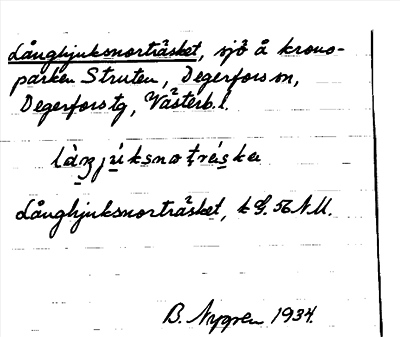 Långhjuksnorträsket, sjö å krono-
parken Struten, Degerfors sn,
Degerfors tg, Västerb. l.
làŋjúksnotráska
Långhjuksnorträsket, k G. 56 N.U.
B. Nygren 1934.